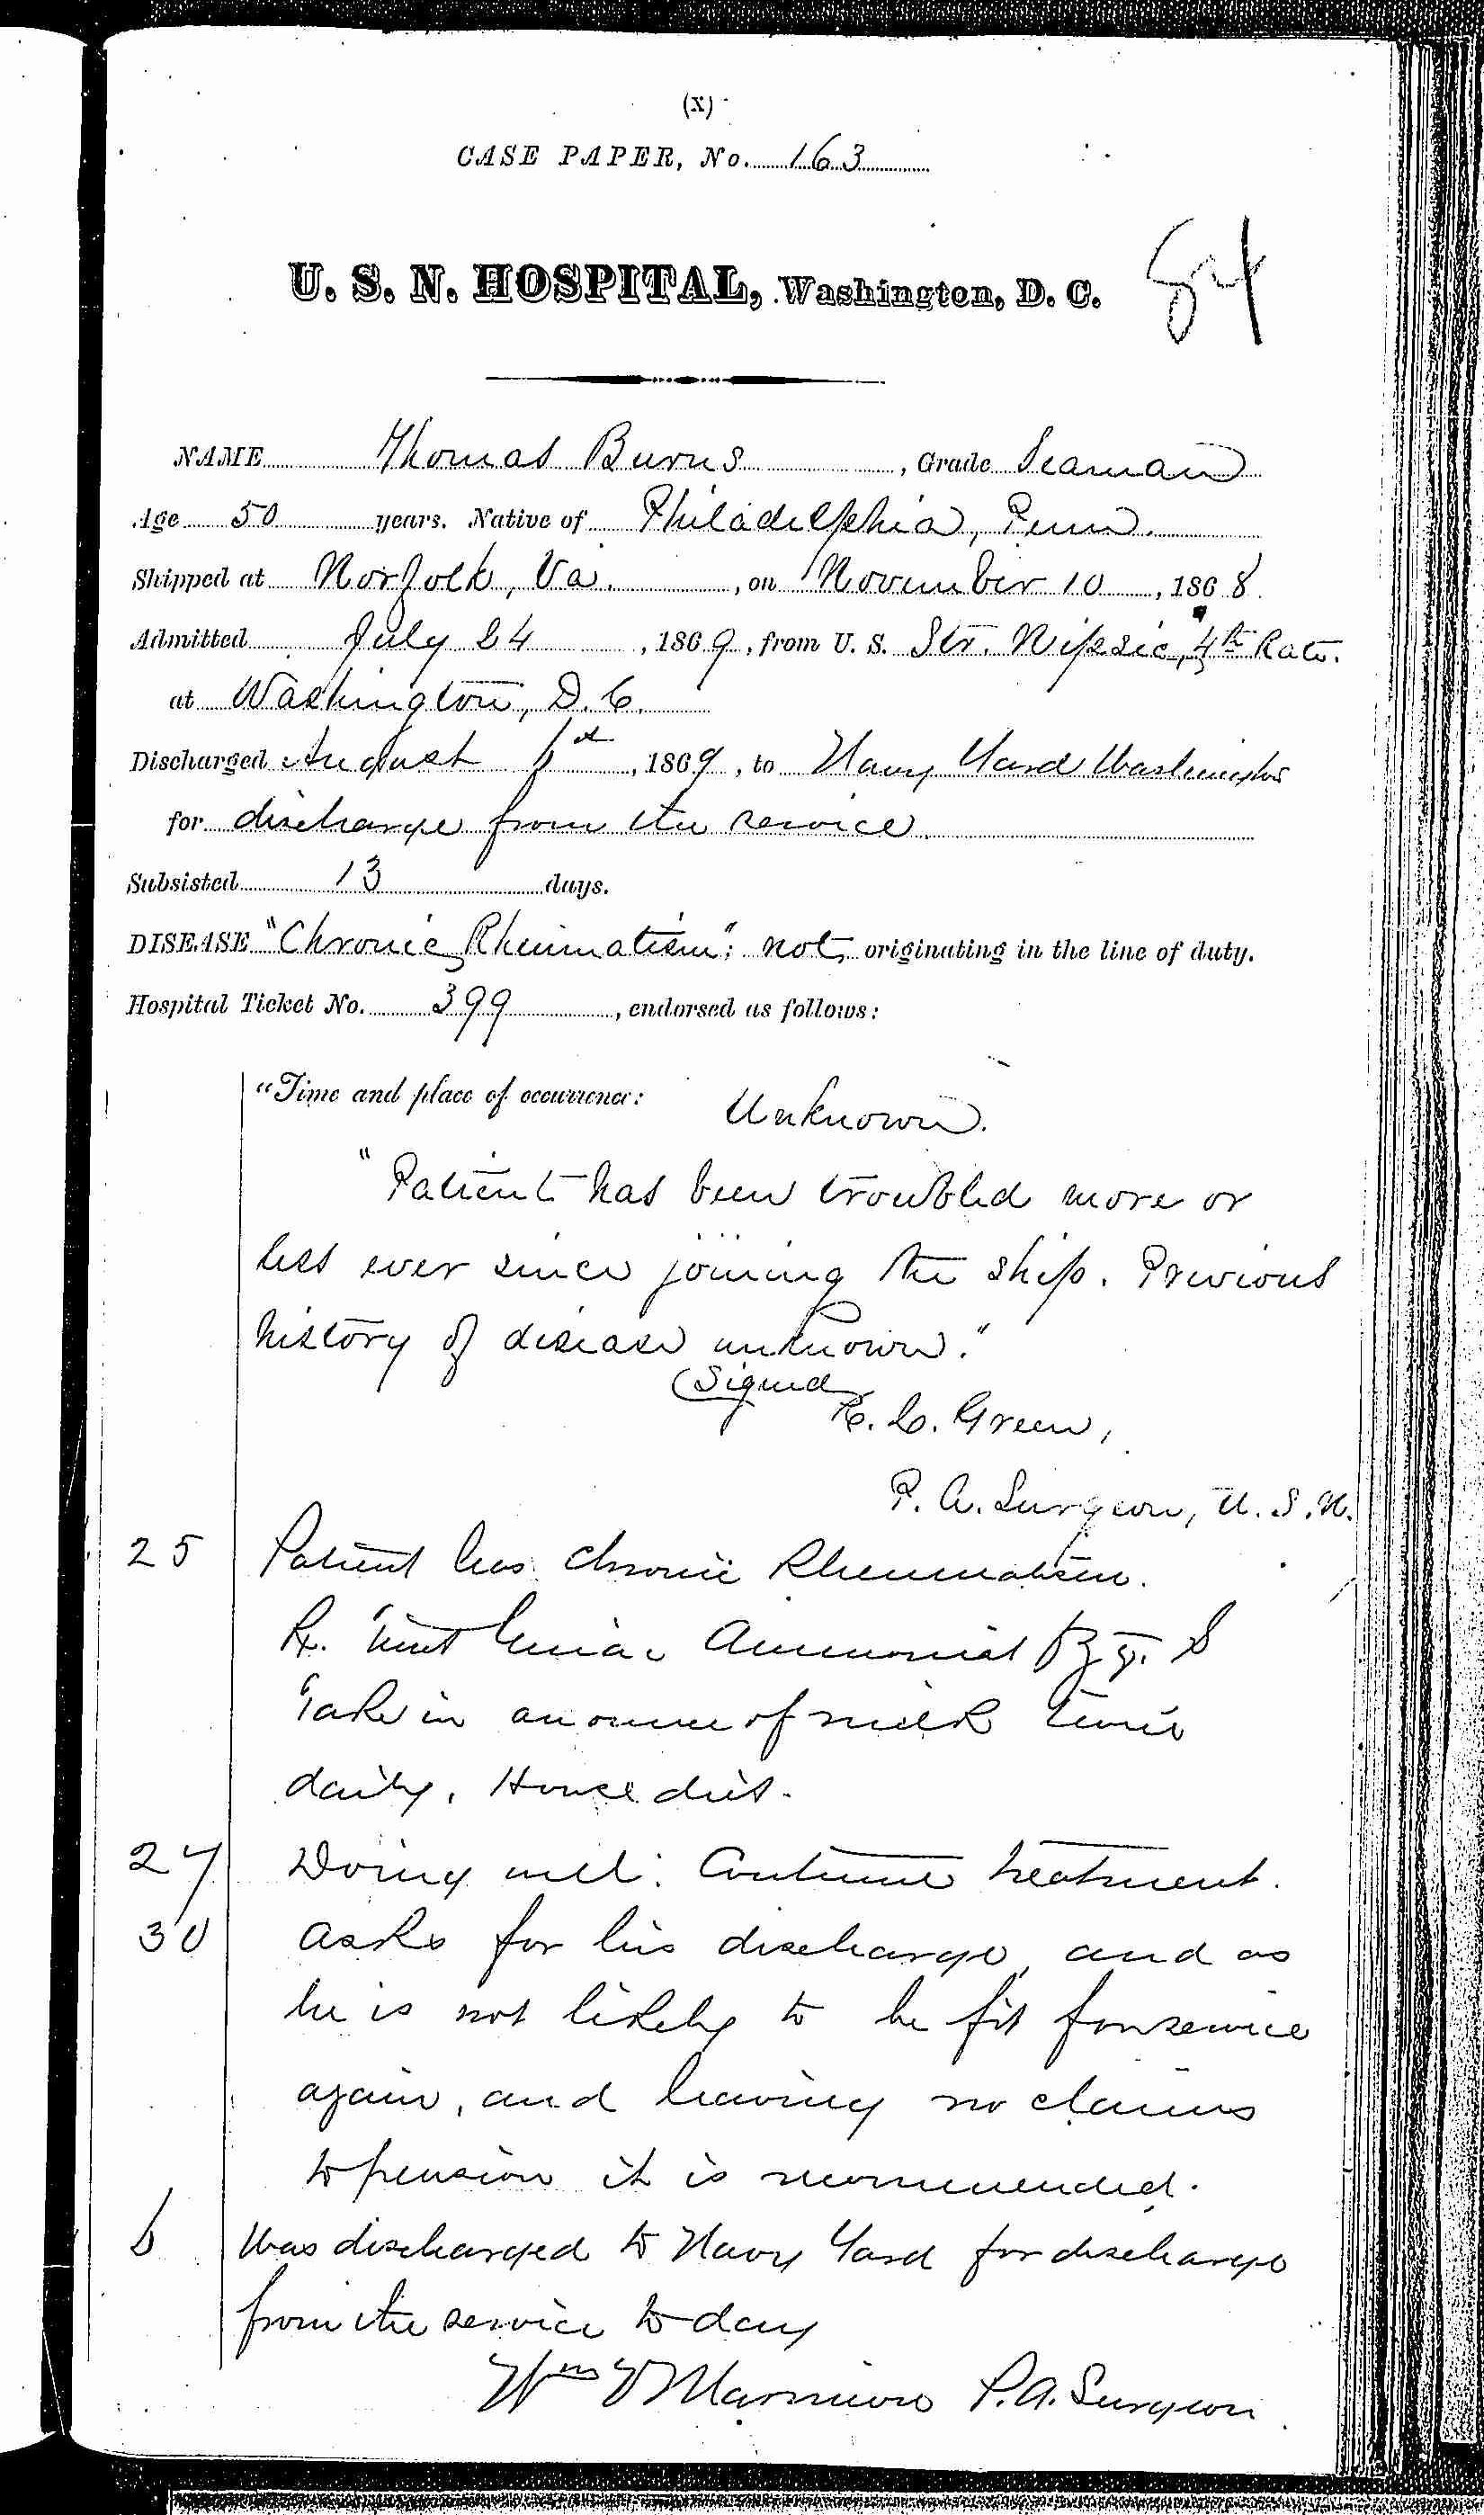 (x)
CASE PAPER, No. 163
U. S. N. HOSPITAL, Washington, D. C.
84
NAME Thomas Burns, Grade Seaman
Age 50 years. Native of Philadelphia, Penn.
Shipped at Norfolk, Va., on November 10, 1868.
Admitted July 24, 1869, from U. S. Str. Nipsic, 4th Rate.
at Washington, D. C.
Discharged August 6th, 1869, to Navy Yard Washington
for discharge from the service.
Subsisted 13 days.
DISEASE "Chronic Rheumatism"; not originating in the line of duty.
Hospital Ticket No. 399, endorsed as follows:
"Time and place of occurrence: Unknown.
"Patient has been troubled more or
less ever since joining the ship. Previous
history of disease unknown."
(Signed
Green,
P. A. Surgeon, U. S. N.
25 Patient has chronic Rheumatism.
Rx. Tinct Guiac Ammoniat S
Take in an ounce of milk twice
daily. House diet.
27 Doing well: Continue treatment.
30 Asks for his discharge, and as
he is not likely to be fit for service
again, and having no claims
to pension it is recommended.
6 Was discharged to Navy Yard for discharge
from the service to day
Wm Marmion P. A. Surgeon